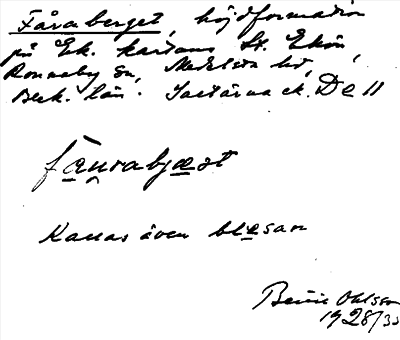 Fåraberget, höjdformation
på Ek. kartans St. Ekön
Ronneby sn, Medelsta hd,
Blek. län. Saxtärna ek. De 11
fäurabjæst
Kallas även blesan
Bertil Ohlsson
1928/33